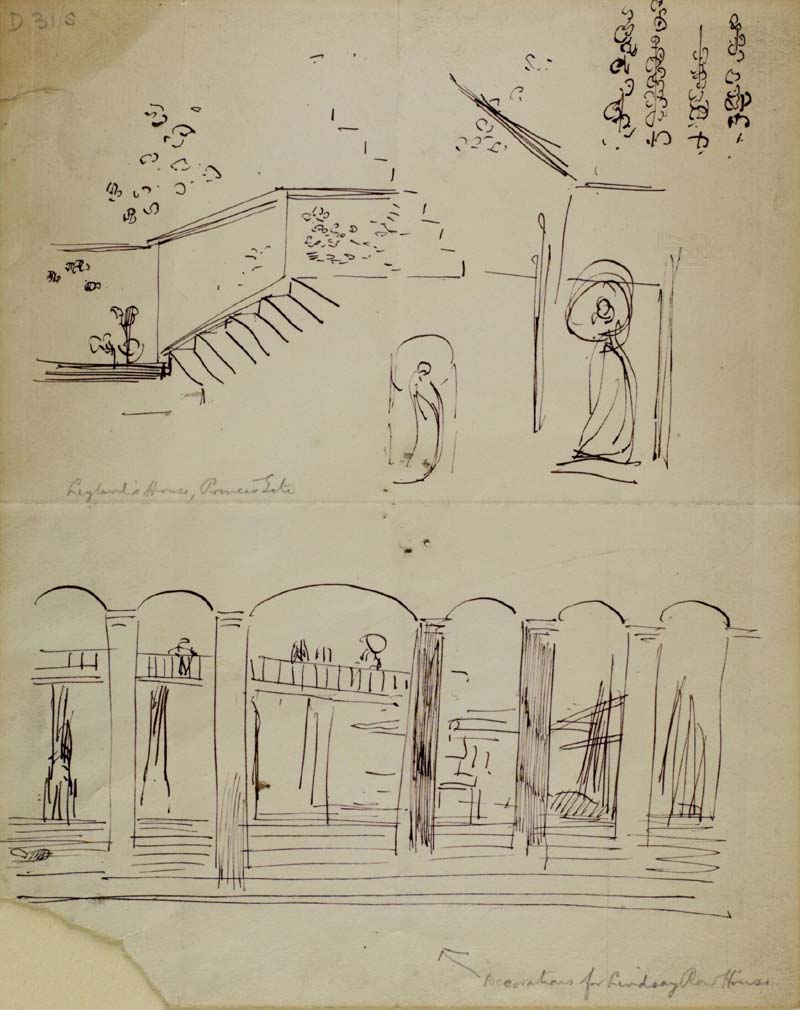 D 31/8
Leyland's House, Princes Gate
Decorations for Lindsay Row House